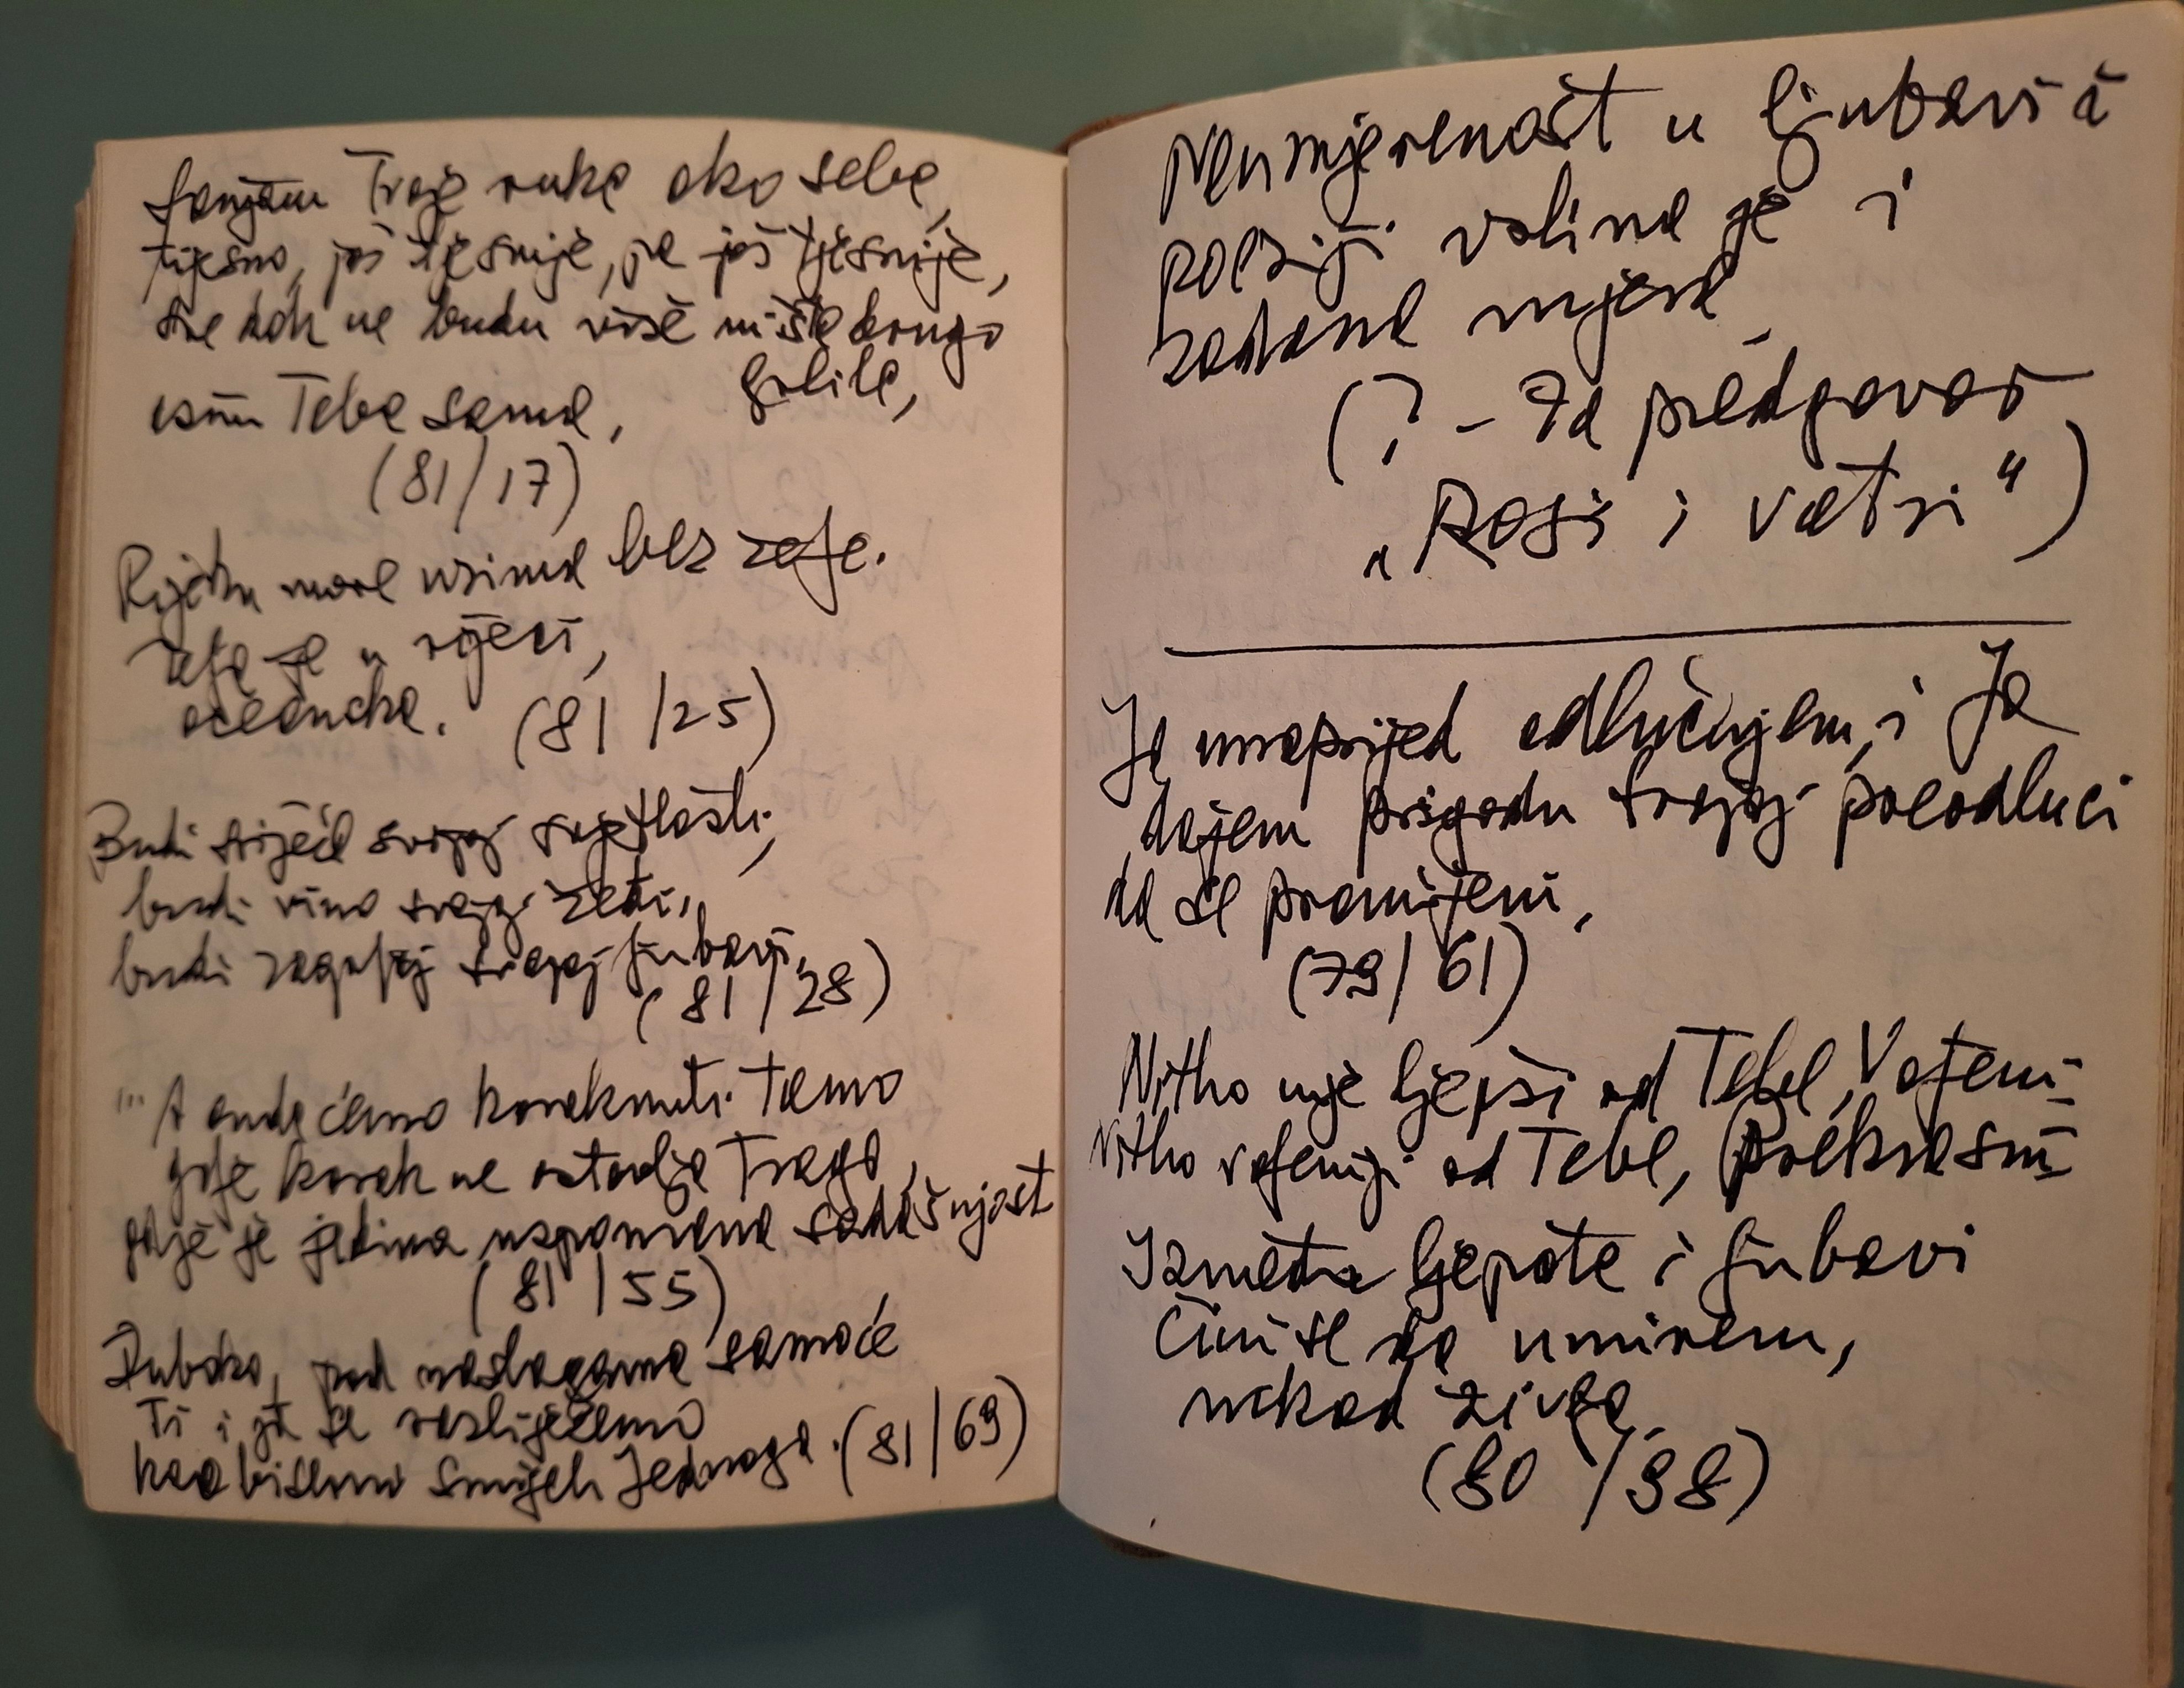 Sanjam Tvoje ruke oko sebe,
tijesno, još tješnje, pa još tješnje,
sve dok ne budu više ništa drugo
grlile,
osim Tebe sama,
(81/17)
Rijeku more uzima bez žeđe.
Žeđa je u rijeci,
oceanska. (81/25)
Budi svijeća svojoj svjetlosti,
budi vino svojoj žeđi,
budi zagrljaj svojoj ljubavi.
(81/28)
"' A onda ćemo koraknuti tamo
gdje korak ne ostavlja traga,
gdje je jedina uspomena sadašnjost
(81/55)
Duboko, pod naslagama samoće
Ti i ja se razliježemo
kao bismo smijeh Jednoga. (81/69)
Neumjerenost u ljubavi i
poeziji vrlina je i
zadana mjera
(? - Za predgovor
„Rosi i vatri“)
Ja unaprijed odlučujem, i Ja
dajem prigodu tvojoj poodluci
da se promijeni,
(79/61)
Nitko nije ljepši od Tebe, Voljeni
Nitko voljeniji od Tebe, Prekrasni
Između ljepote i ljubavi
čini se da umirem,
nikad živa.
(80/98)